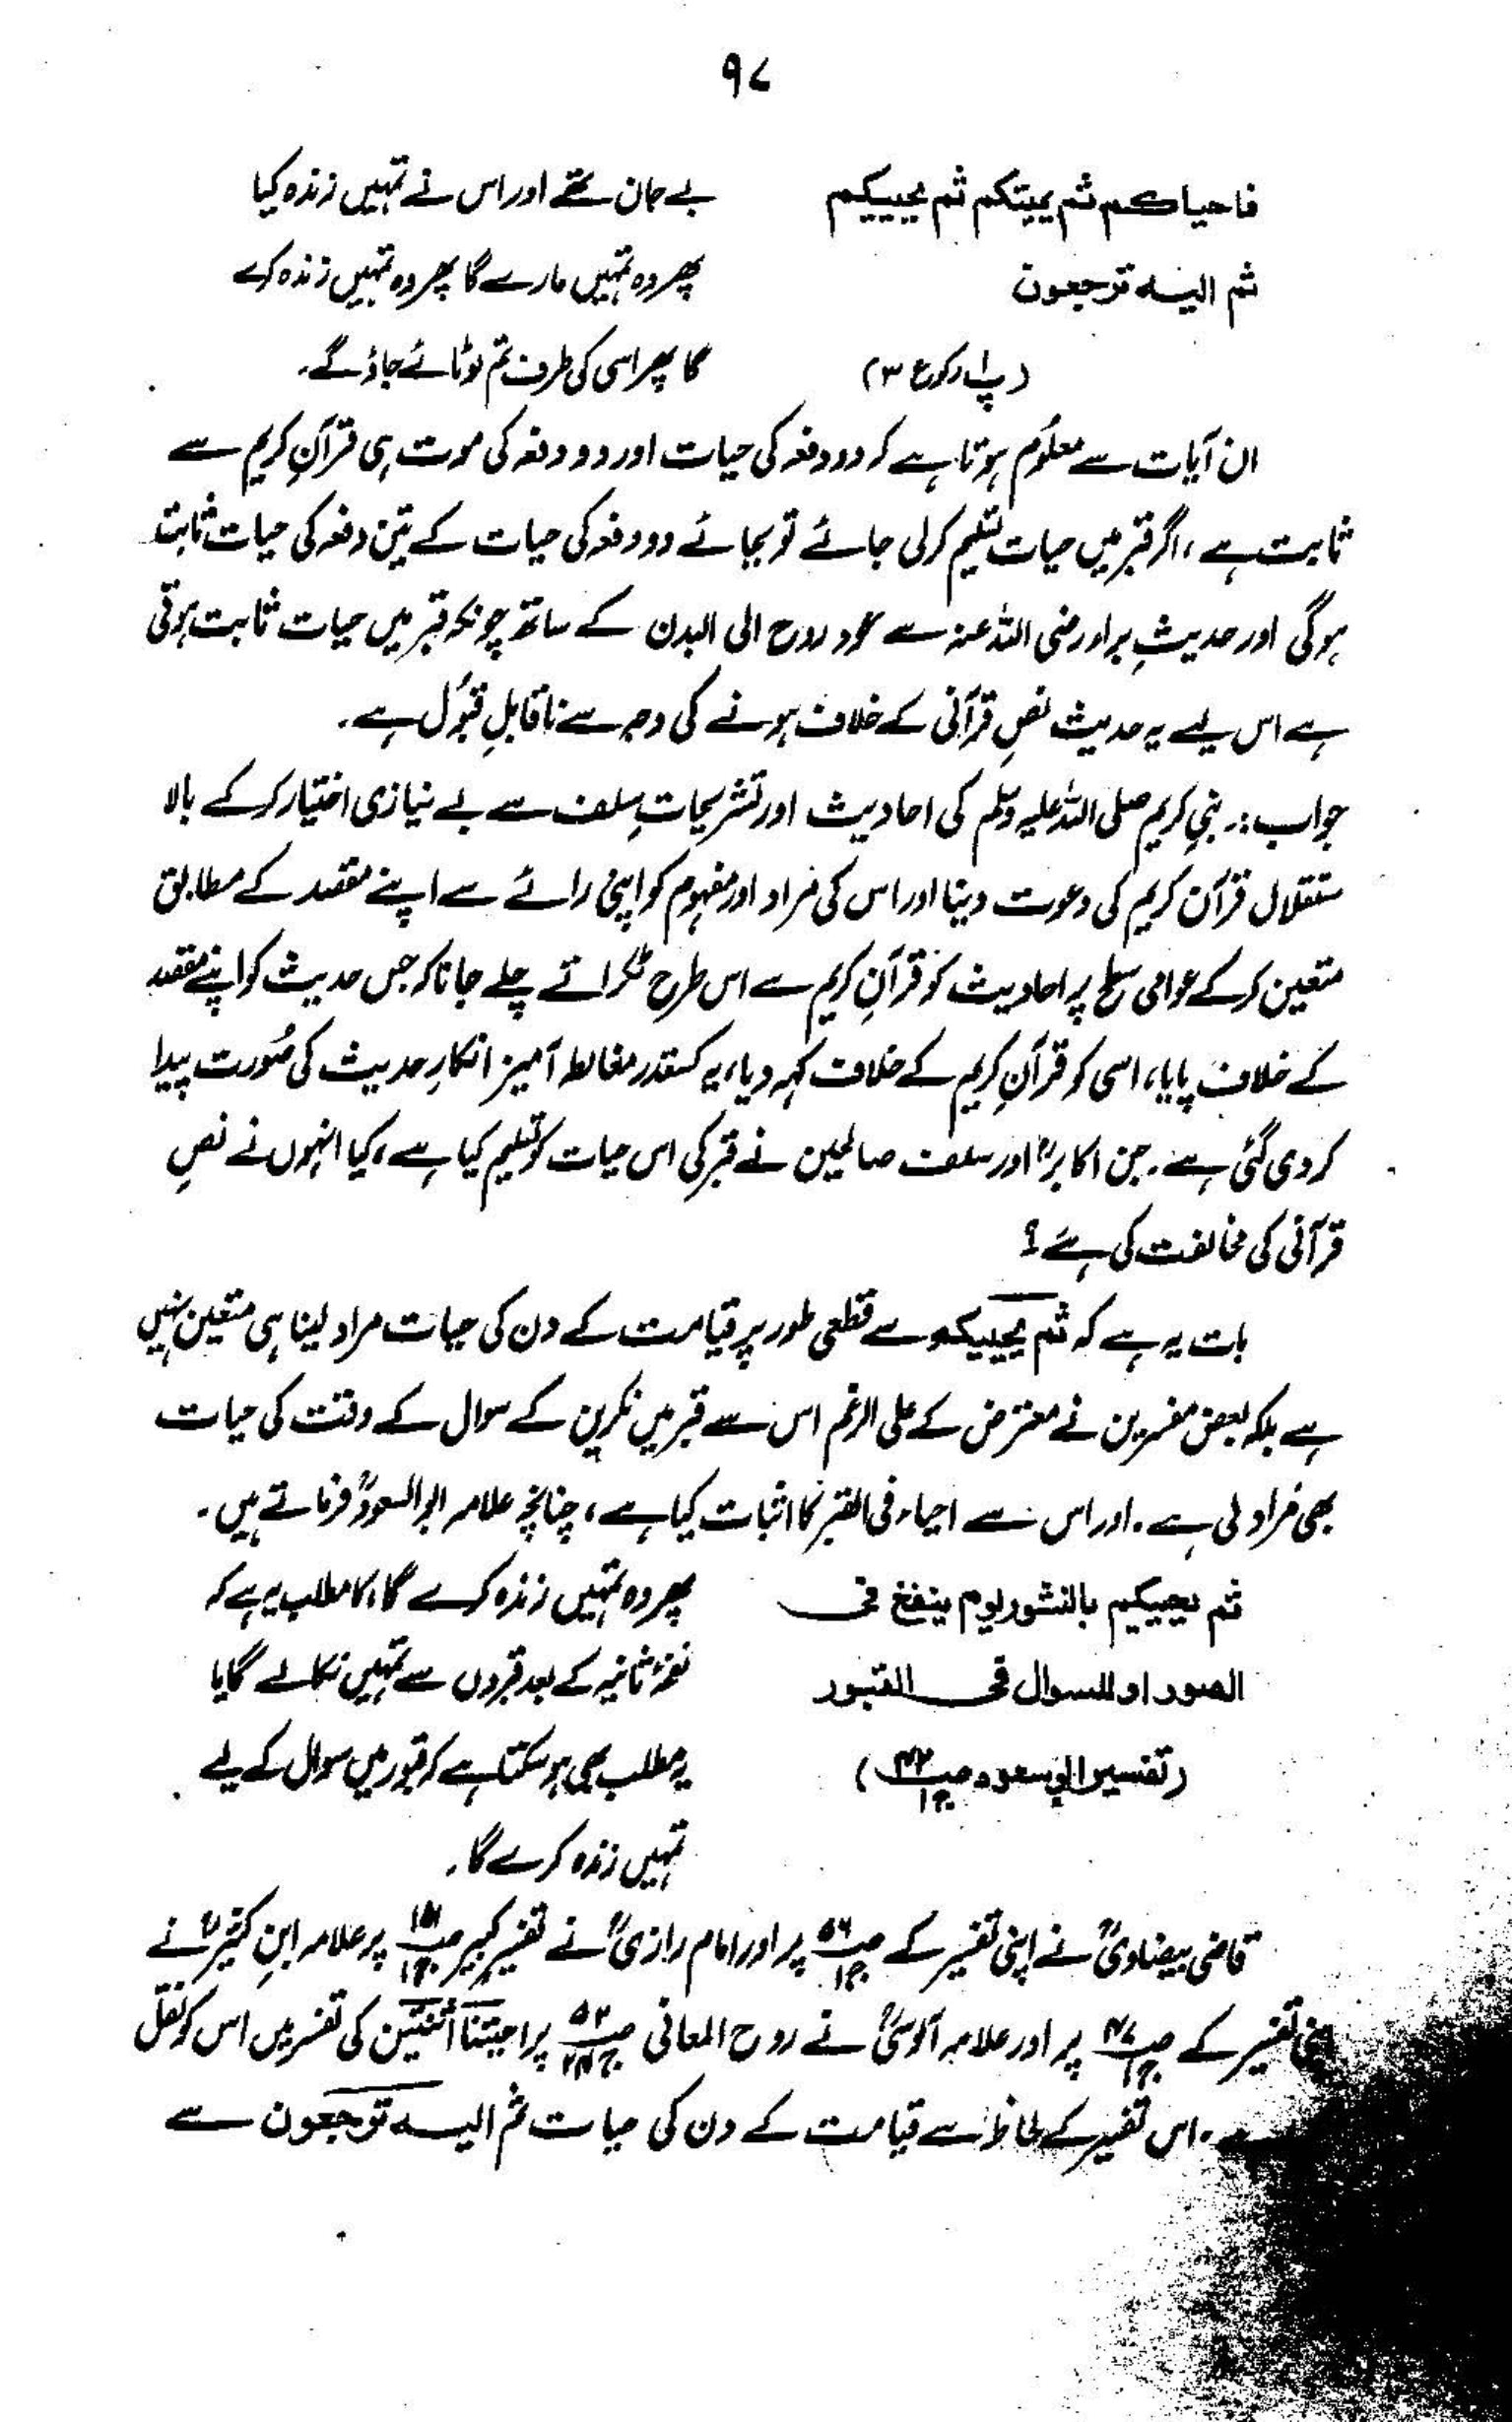 ۹۷
فاحیاکم ثم یمیتکم ثم یحییکم
بے جان تھے اور اس نے تمہیں زندہ کیا
ثم الیہ ترجعون
پھر وہ تمہیں مارے گا پھر وہ تمہیں زندہ کرے
(پ۱ رکوع ۳)
گا پھر اسی کی طرف تم لوٹائے جاؤ گے۔
ان آیات سے معلوم ہوتا ہے کہ دو دفعہ کی حیات اور دو دفعہ کی موت ہی قرآنِ کریم سے
ثابت ہے، اگر قبر میں حیات تسلیم کر لی جائے تو بجائے دو دفعہ کی حیات کے تین دفعہ کی حیات ثابت
ہوگی اور حدیثِ براء رضی اللہ عنہ سے عود روح الی البدن کے ساتھ چونکہ قبر میں حیات ثابت ہوتی
ہے اس لیے یہ حدیث نصِ قرآنی کے خلاف ہونے کی وجہ سے ناقابلِ قبول ہے۔
جواب:۔ نبی کریم صلی اللہ علیہ وسلم کی احادیث اور تشریحاتِ سلف سے بے نیازی اختیار کرکے بالا
ستقلال قرآن کریم کی دعوت دینا اور اس کی مراد اور مفہوم کو اپنی رائے سے اپنے مقصد کے مطابق
متعین کرکے عوامی سطح پر احادیث کو قرآنِ کریم سے اس طرح ٹکراتے چلے جانا کہ جس حدیث کو اپنے مقصد
کے خلاف پایا، اسی کو قرآنِ کریم کے خلاف کہہ دیا، یہ کسقدر مغالطہ آمیز انکارِ حدیث کی صُورت پیدا
کر دی گئی ہے۔ جن اکابرؒ اور سلف صالحین نے قبر کی اس حیات کو تسلیم کیا ہے، کیا انہوں نے نصِ
قرآنی کی مخالفت کی ہے؟
بات یہ ہے کہ ثم یحییکم سے قطعی طور پر قیامت کے دن کی حیات مراد لینا ہی متعین نہیں
ہے بلکہ بعض مفسرین نے معترض کے علی الرغم اس سے قبر میں نکرین کے سوال کے وقت کی حیات
بھی مراد لی ہے۔ اور اس سے احیاء فی القبر کا اثبات کیا ہے، چنانچہ علامہ ابوالسعودؒ فرماتے ہیں۔
ثم یحییکم بالنشور یوم ینفخ فی
پھر وہ تمہیں زندہ کرے گا، کا مطلب یہ ہے کہ
الصور او للسوال فی القبور
نفخہ ثانیہ کے بعد قبروں سے تمہیں نکالے گا یا
(تفسیر ابی سعود ص ج۱)
یہ مطلب بھی ہو سکتا ہے کہ قبور میں سوال کے لیے
تمہیں زندہ کرے گا۔
قاضی بیضاویؒ نے اپنی تفسیر کے ص۵۶ ج۱ پر اور امام رازیؒ نے تفسیر کبیر ص۱۵۱ ج۱ پر علامہ ابنِ کثیرؒ نے
اپنی تفسیر کے ص۴۷ ج۱ پر اور علامہ آلوسیؒ نے روح المعانی ص۵۲ ج۲۴ پر احییتنا اثنتین کی تفسیر میں اس کو نقل
ہے۔ اس تفسیر کے لحاظ سے قیامت کے دن کی حیات ثم الیہ ترجعون سے